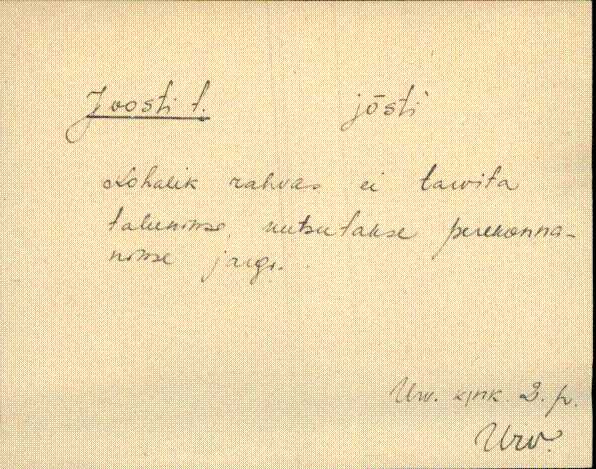 Joosti t. jōsti
Kohalik rahvas ei tarvita
talunime, kutsutakse perekonna-
nime järgi.
Urv. kjnk. 2. p.
Urv.